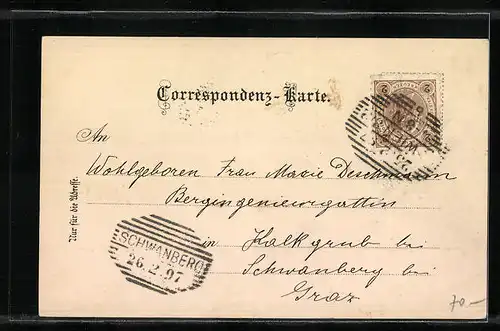 Correspondenz-Karte.
2 2
WIEN
An
Wohlgeboren Frau Marie Deschmann
Bergingenieursgattin
in Kalkgrub bei
Schwanberg bei
Graz
Nur für die Adresse.
SCHWANBERG
26.2.97
70.-